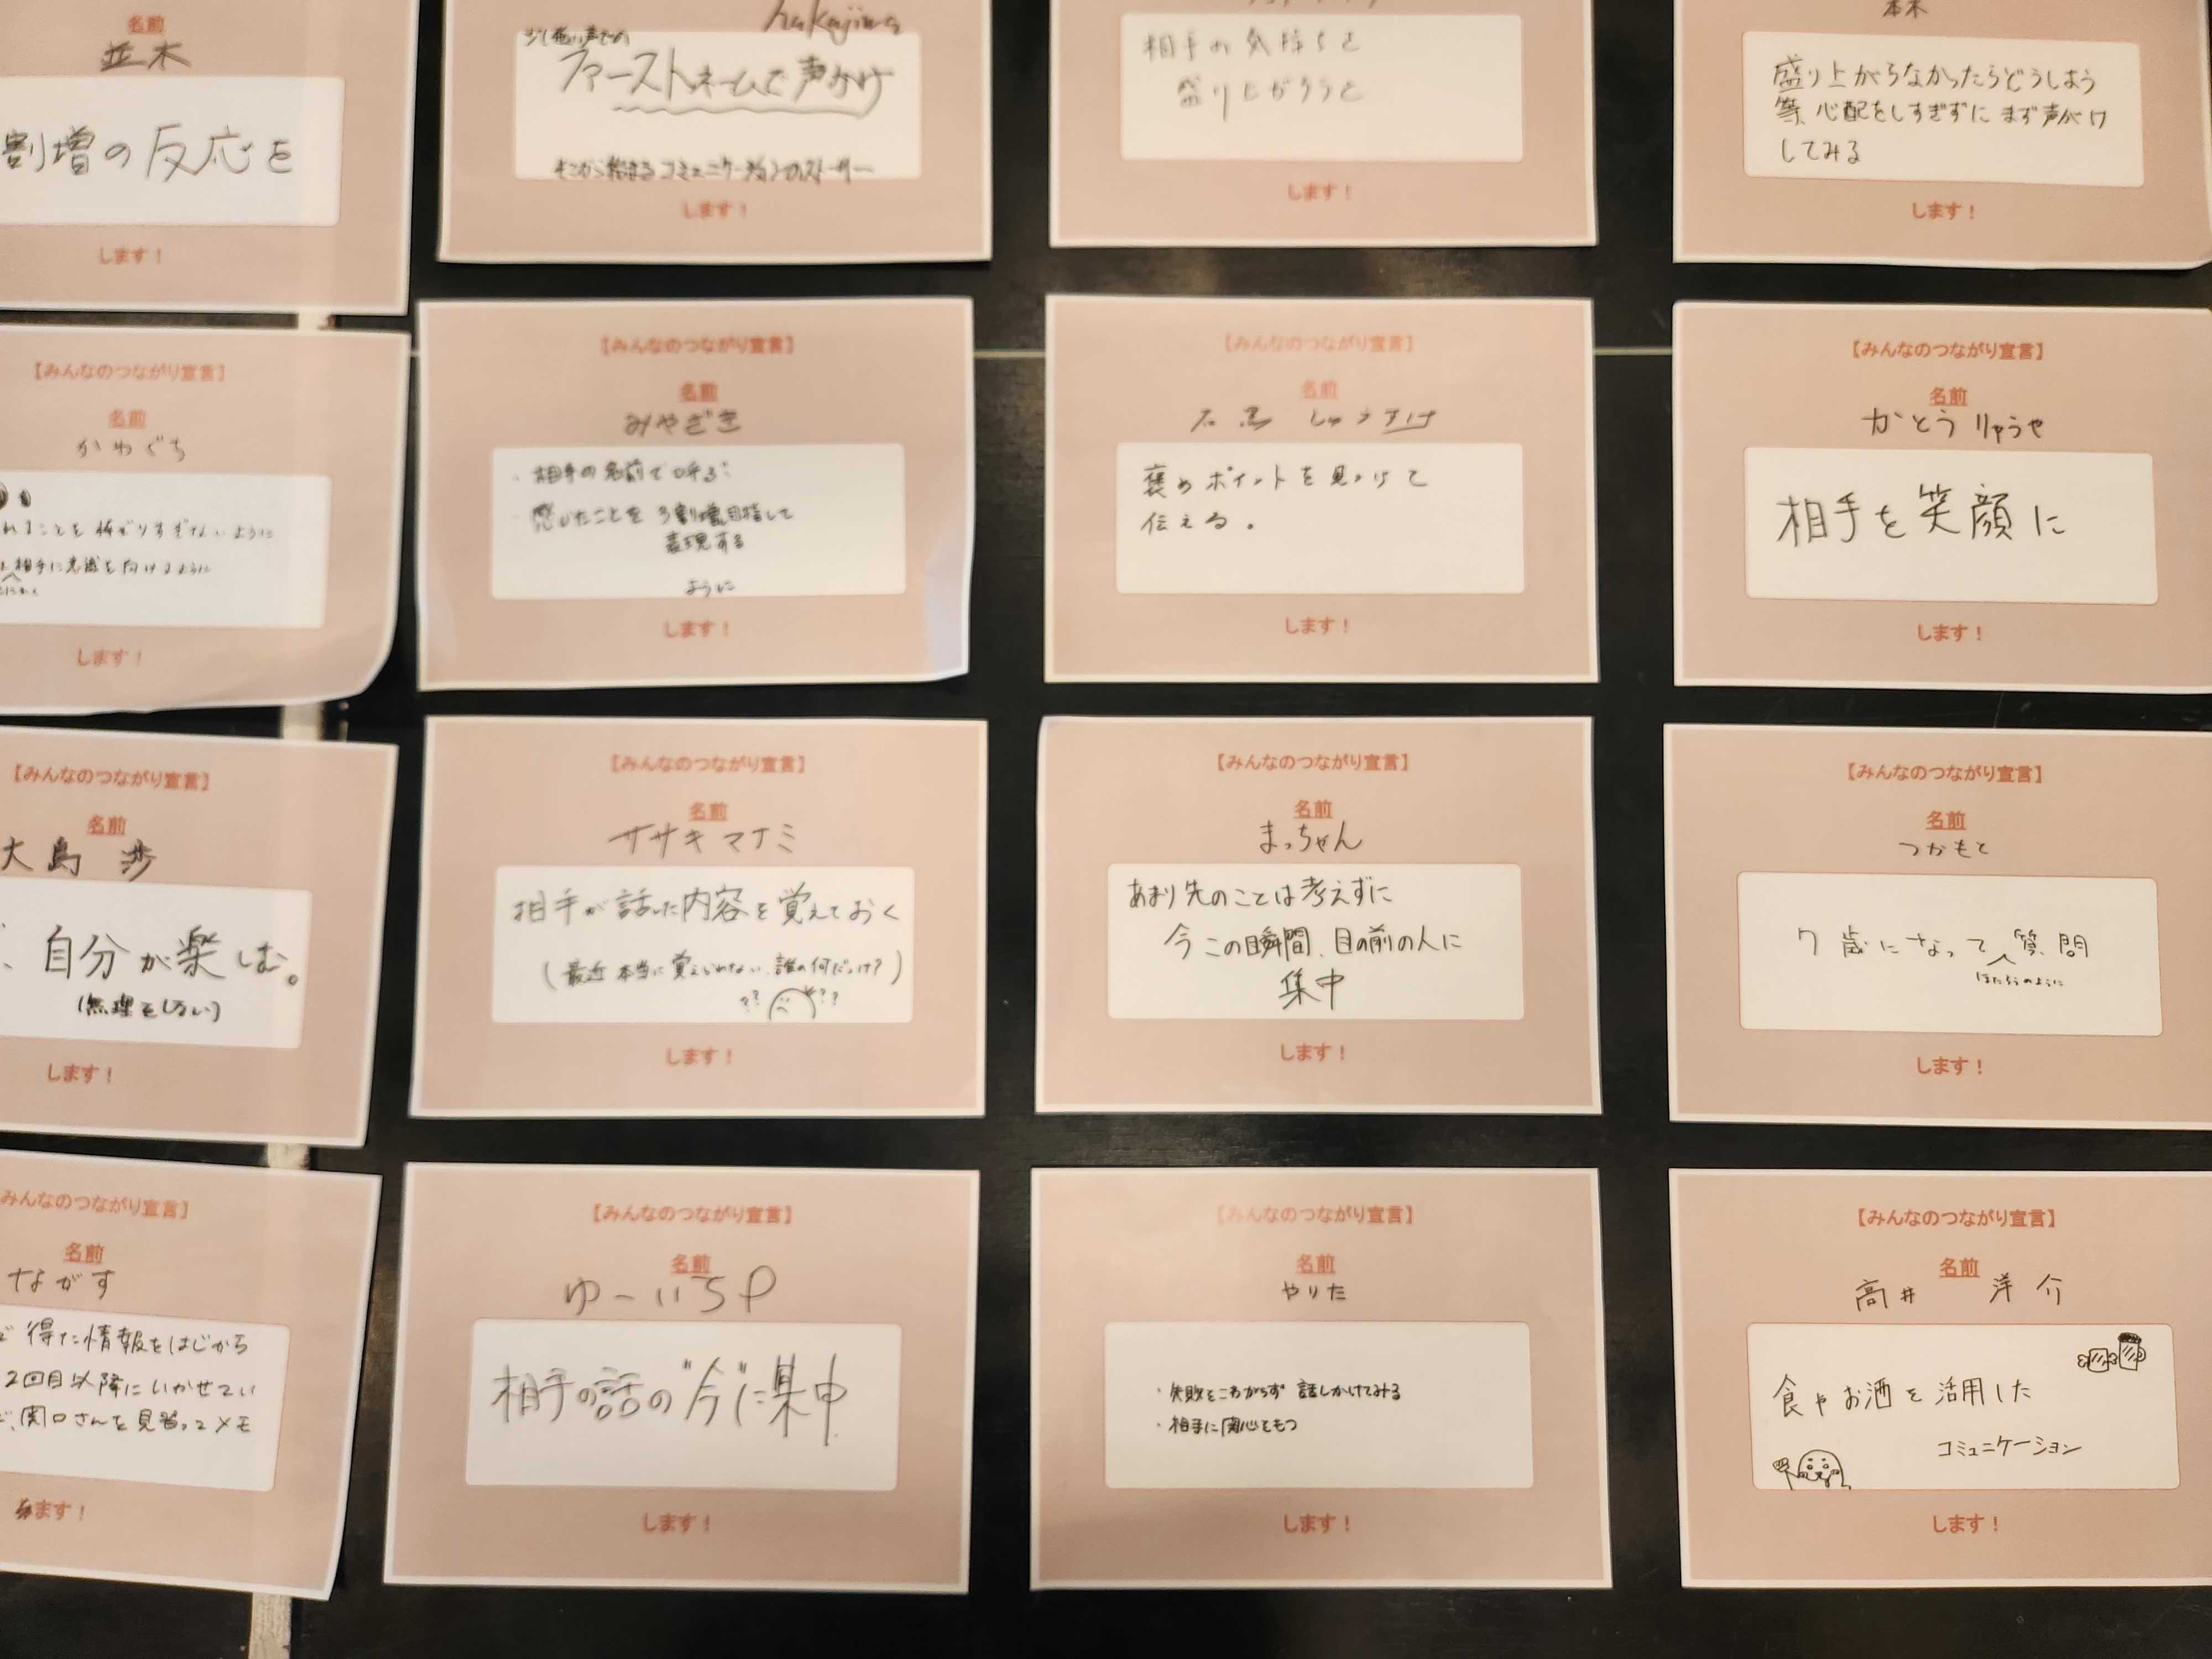 名前
並木
割増の反応を
します！
nakajima
少し低い声での
ファーストネームで声かけ
そこから始まるコミュニケーションのストーリー
します！
相手の気持ちを
盛り上がろうと
します！
本木
盛り上がらなかったらどうしよう
等、心配をしすぎずに まず声がけ
してみる
します！
【みんなのつながり宣言】
名前
かわぐち
れることを怖がりすぎないように
相手に意識を向けるように
します！
【みんなのつながり宣言】
名前
みやざき
・相手の名前で呼ぶ
・感じたことを 3割増目指して
表現する
ように
します！
【みんなのつながり宣言】
名前
しゅうすけ
褒めポイントを見つけて
伝える。
します！
【みんなのつながり宣言】
名前
かとうりゅうや
相手を笑顔に
します！
【みんなのつながり宣言】
名前
大島 渉
、自分が楽しむ。
(無理をしない)
します！
【みんなのつながり宣言】
名前
ササキマナミ
相手が話した内容を覚えておく
(最近本当に覚えられない、誰の何だっけ?)
?? ??
します！
【みんなのつながり宣言】
名前
まっちゃん
あまり先のことは考えずに
今この瞬間、目の前の人に
集中
します！
【みんなのつながり宣言】
名前
つかもと
7歳になって質問
ほたろうのように
します！
みんなのつながり宣言】
名前
ながす
得た情報をはじから
2回目以降にいかせてい
関口さんを見習ってメモ
ます！
【みんなのつながり宣言】
名前
ゆーいちP
相手の話の"今"に集中
します！
【みんなのつながり宣言】
名前
やりた
・失敗をこわがらず 話しかけてみる
・相手に関心をもつ
します！
【みんなのつながり宣言】
名前
高井 洋介
食やお酒を活用した
コミュニケーション
します！